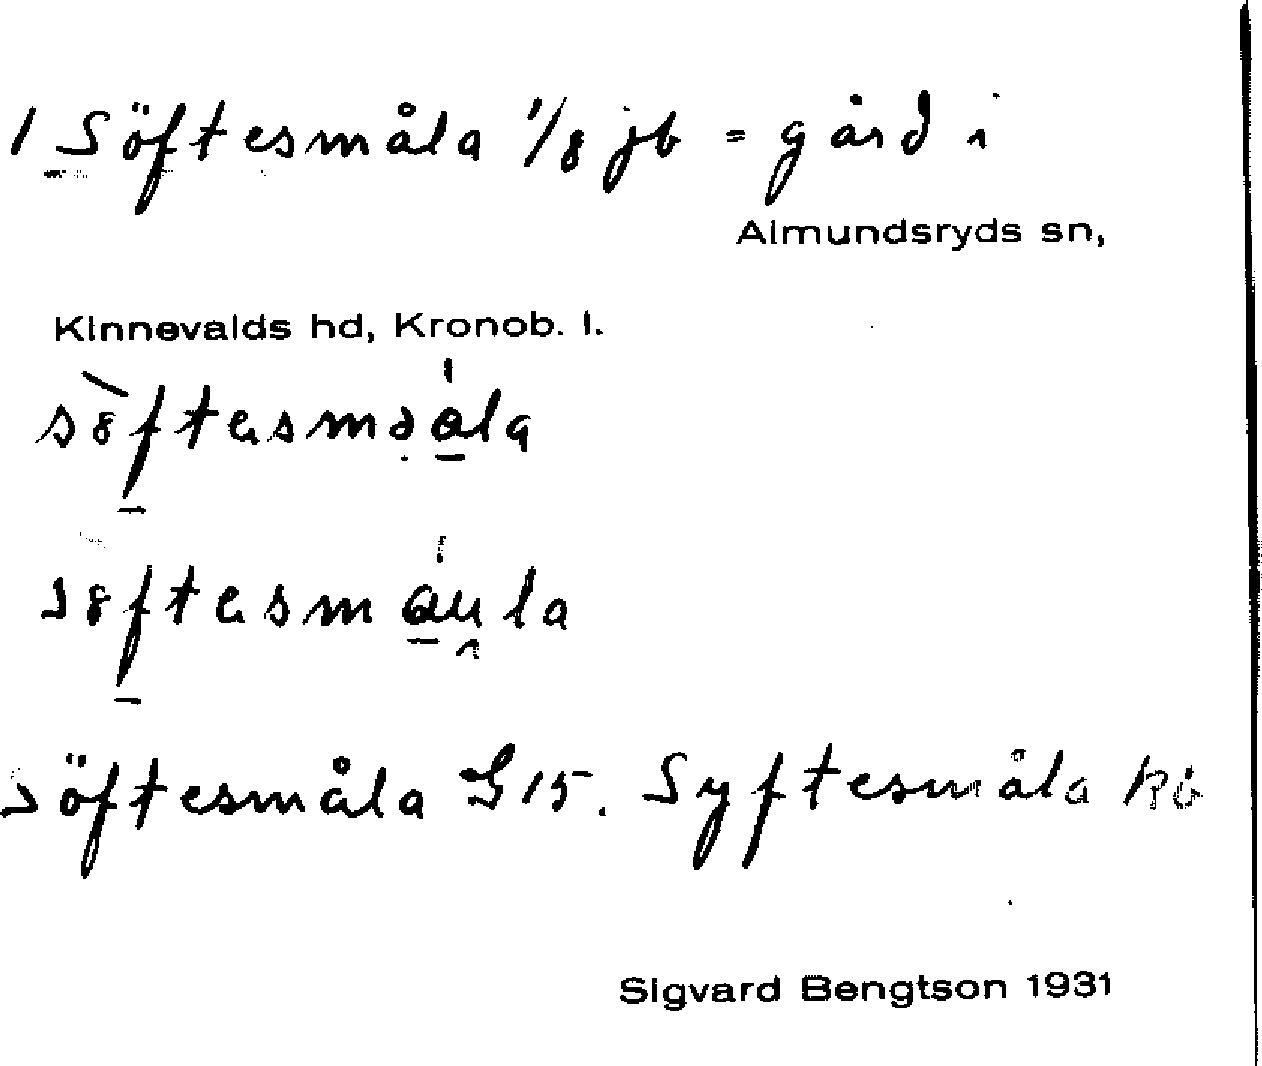 1 Söftesmåla 1/8 jb = gård i
Almundsryds sn,
Kinnevalds hd, Kronob. l.
Söftesmåla G 15. Syftesmåla kb
Sigvard Bengtson 1931